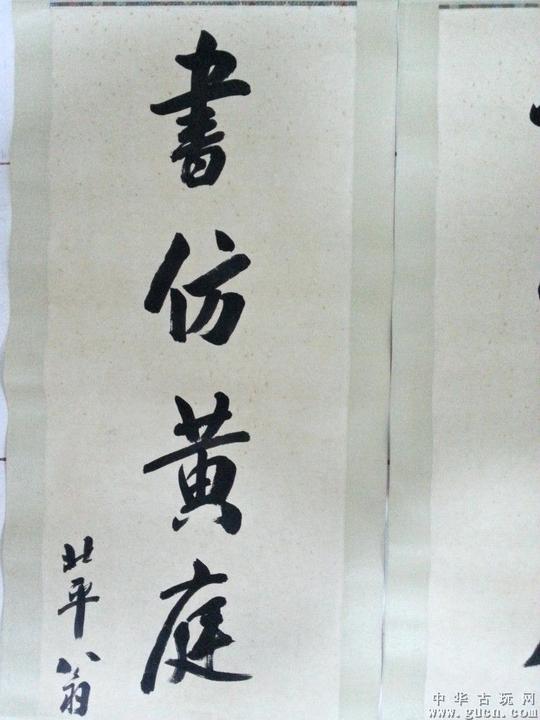 書仿黄庭
北平翁
中华古玩网
www.gucn.com